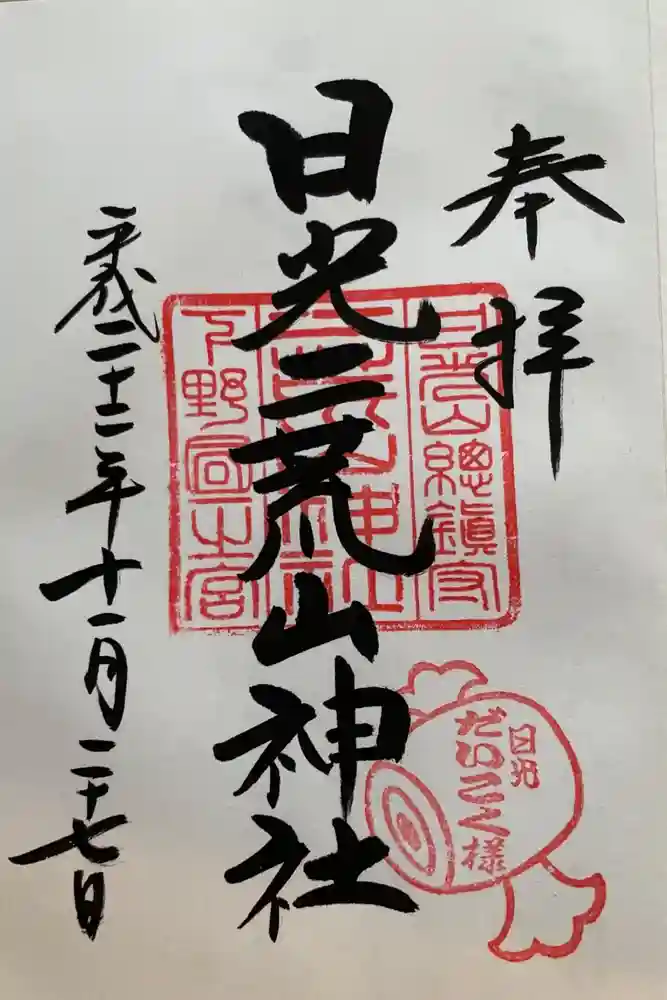 奉拝
日光二荒山神社
平成二十二年十一月二十七日
日光山總鎮守
二荒山神社
下野國一之宮
日光
だいこく様